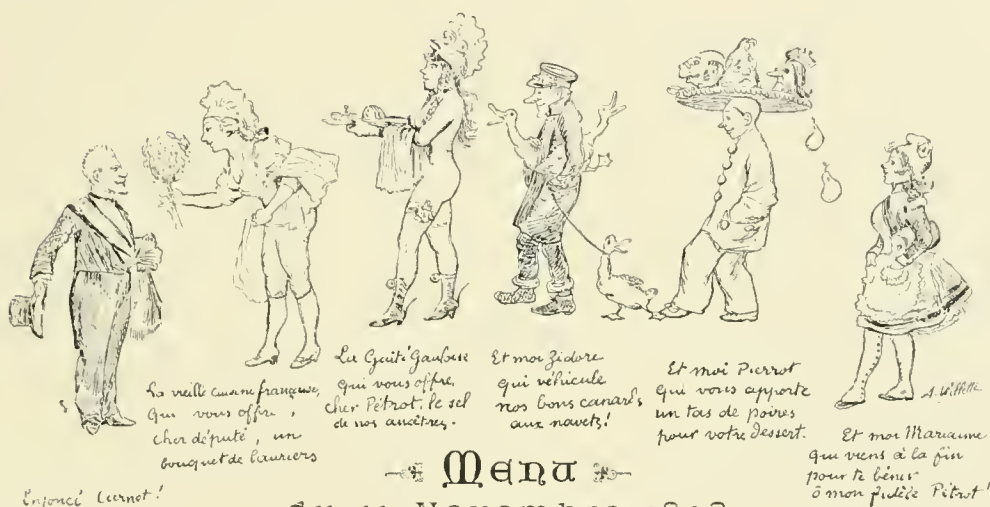 La vieille cuisine française,
qui vous offre,
cher député, un
bouquet de lauriers
La Gaité Gauloise
qui vous offre,
cher Pétrot, le sel
de nos ancêtres.
Et moi Zidore
qui véhicule
nos bons canards
aux navets!
Et moi Pierrot
qui vous apporte
un tas de poires
pour votre dessert.
A. Willette
Et moi Marianne
qui viens à la fin
pour te bénir
ô mon fidèle Pétrot!
Enfoncé Carnot!
MENU
Novembre